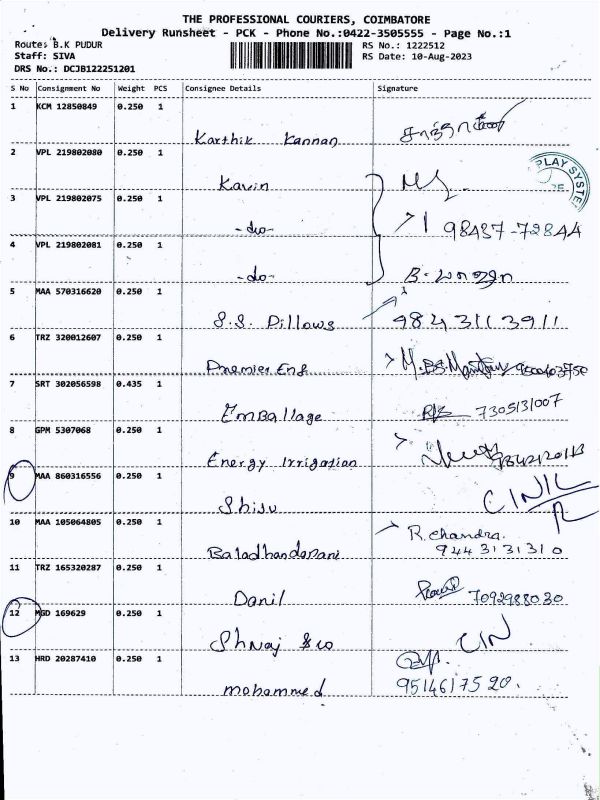 THE PROFESSIONAL COURIERS, COIMBATORE
Delivery Runsheet - PCK - Phone No.:0422-3505555 - Page No.:1
Route: B.K PUDUR RS No.: 1222512
Staff: SIVA RS Date: 10-Aug-2023
DRS No.: DCJB122251201
S No Consignment No Weight PCS Consignee Details Signature
1 KCM 12850849 0.250 1
Karthik Kannan
2 VPL 219802080 0.250 1
PLAY SYSTE
Kavin
3 VPL 219802075 0.250 1
-do- 98437-72844
4 VPL 219802081 0.250 1
-do-
5 MAA 570316620 0.250 1
S.S. Pillows 9843113911
6 TRZ 320012607 0.250 1
Premier Eng
7 SRT 302056598 0.435 1
Emballage 7305131007
8 GPM 5307068 0.250 1
Energy Irrigation
9 MAA 860316556 0.250 1
Shisu
10 MAA 105064805 0.250 1
R. Chandra.
Baladhandapani 9443131310
11 TRZ 165320287 0.250 1
Danil 7092988030
12 MGD 169629 0.250 1
CIN
13 HRD 20287410 0.250 1
mohammed 9514617520.